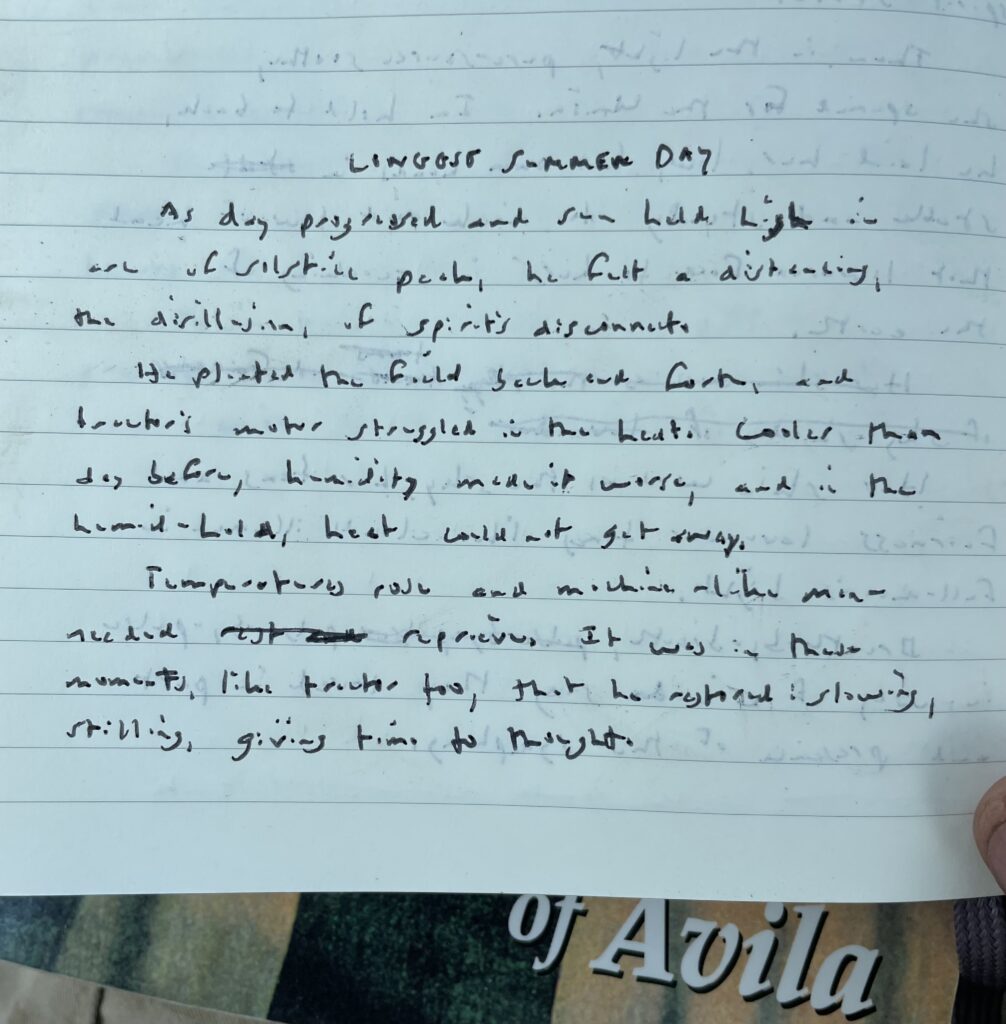 LONGEST SUMMER DAY
As day progressed and sun held high in
arc of solstice peak, he felt a distancing,
the disillusion, of spirit's disconnect.
He plowed the field back and forth, and
tractor's motor struggled in the heat. Cooler than
day before, humidity made it worse, and in the
humid-hold, heat could not get away.
Temperatures rose and machine-like man-
needed reprieve. It was in these
moments, like tractor too, that he restored: slowing,
stilling, giving time to thought.
of Avila